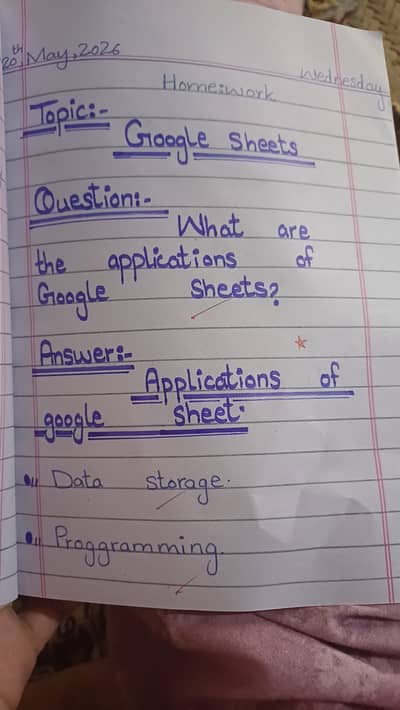 20th, May, 2026
Wednesday
Homework
Topic:-
Google Sheets
Question:-
What are
the applications of
Google Sheets?
Answer:-
Applications of
google sheet.
Data storage.
Proggramming.